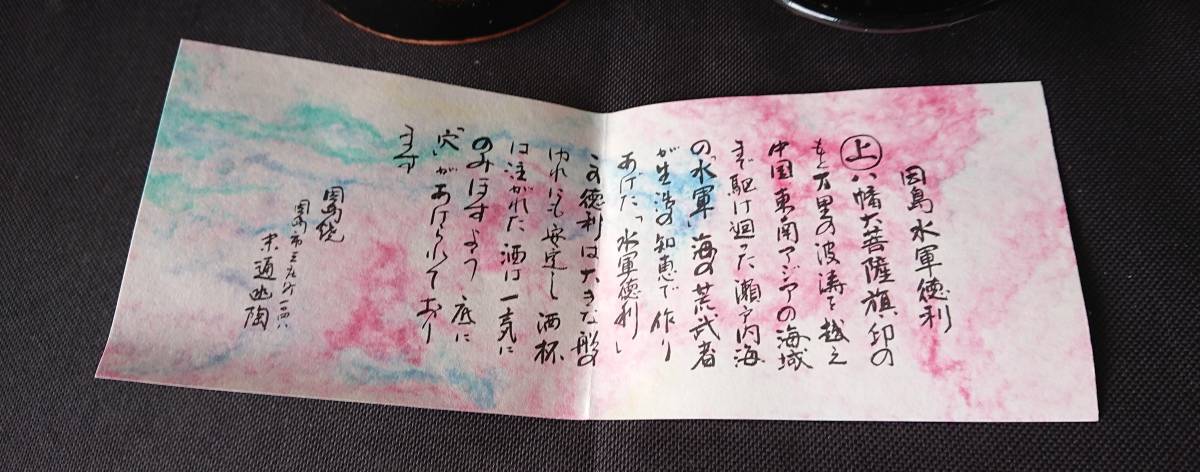 因島水軍徳利
上 八幡大菩薩旗印の
もと万里の波涛を越え
中国東南アジアの海域
まで駆け廻った瀬戸内海
の「水軍」海の荒武者
が生活の知恵で作り
あげた「水軍徳利」
この徳利は大きな船の
ゆれにも安定し酒杯
は注がれた酒は一気に
のみほすよう底に
「穴」があけられており
ます
因島焼
因島市